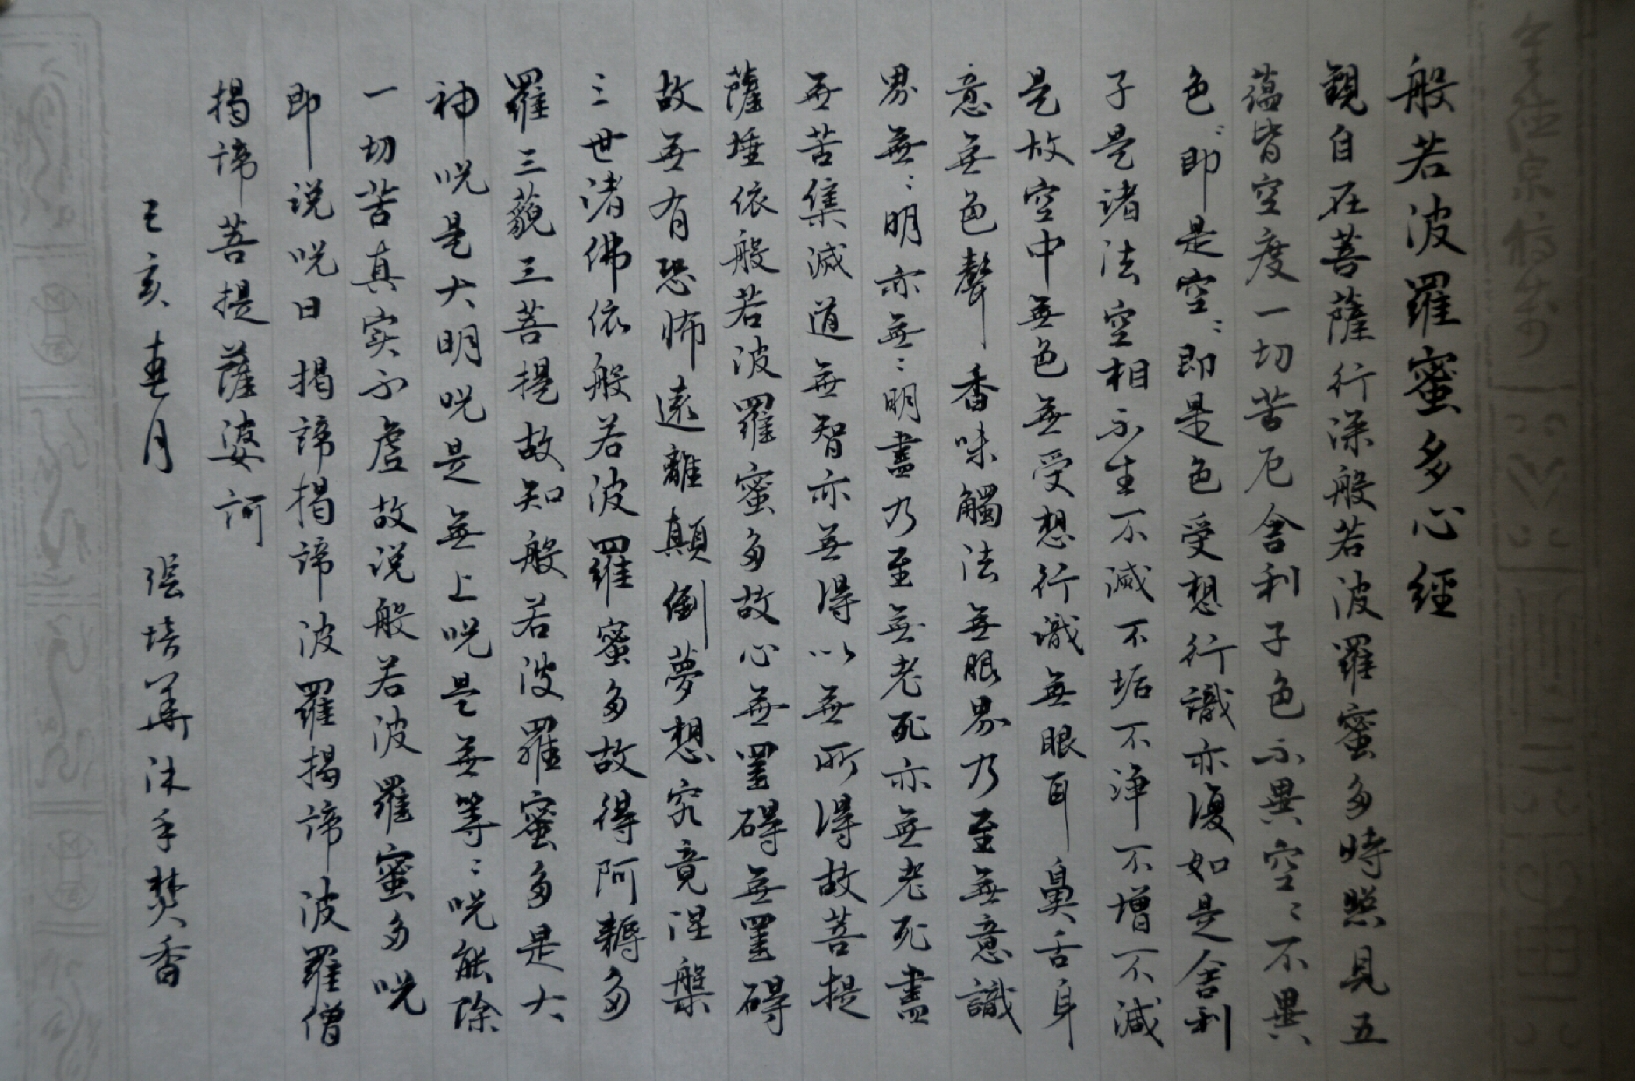 般若波羅蜜多心經
觀自在菩薩行深般若波羅蜜多時照見五
蘊皆空度一切苦厄舍利子色不異空〻不異
色〻即是空〻即是色受想行識亦復如是舍利
子是諸法空相不生不滅不垢不淨不增不減
是故空中無色無受想行識無眼耳鼻舌身
意無色聲香味觸法無眼界乃至無意識
界無〻明亦無〻明盡乃至無老死亦無老死盡
無苦集滅道無智亦無得以無所得故菩提
薩埵依般若波羅蜜多故心無罣碍無罣碍
故無有恐怖遠離顛倒夢想究竟涅槃
三世諸佛依般若波羅蜜多故得阿耨多
羅三藐三菩提故知般若波羅蜜多是大
神咒是大明咒是無上咒是無等〻咒能除
一切苦真实不虛故说般若波羅蜜多咒
即说咒曰揭諦揭諦波羅揭諦波羅僧
揭諦菩提薩婆訶
亥 月 張培 沐手焚香